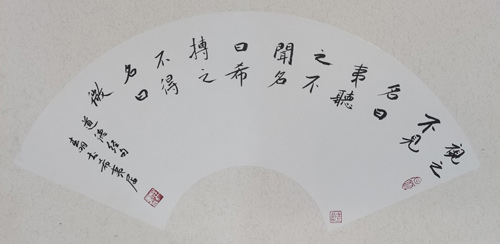 視之
不見
名曰
夷聽
之不
聞名
曰希
搏之
不得
名曰
微
道德經句
希夷居